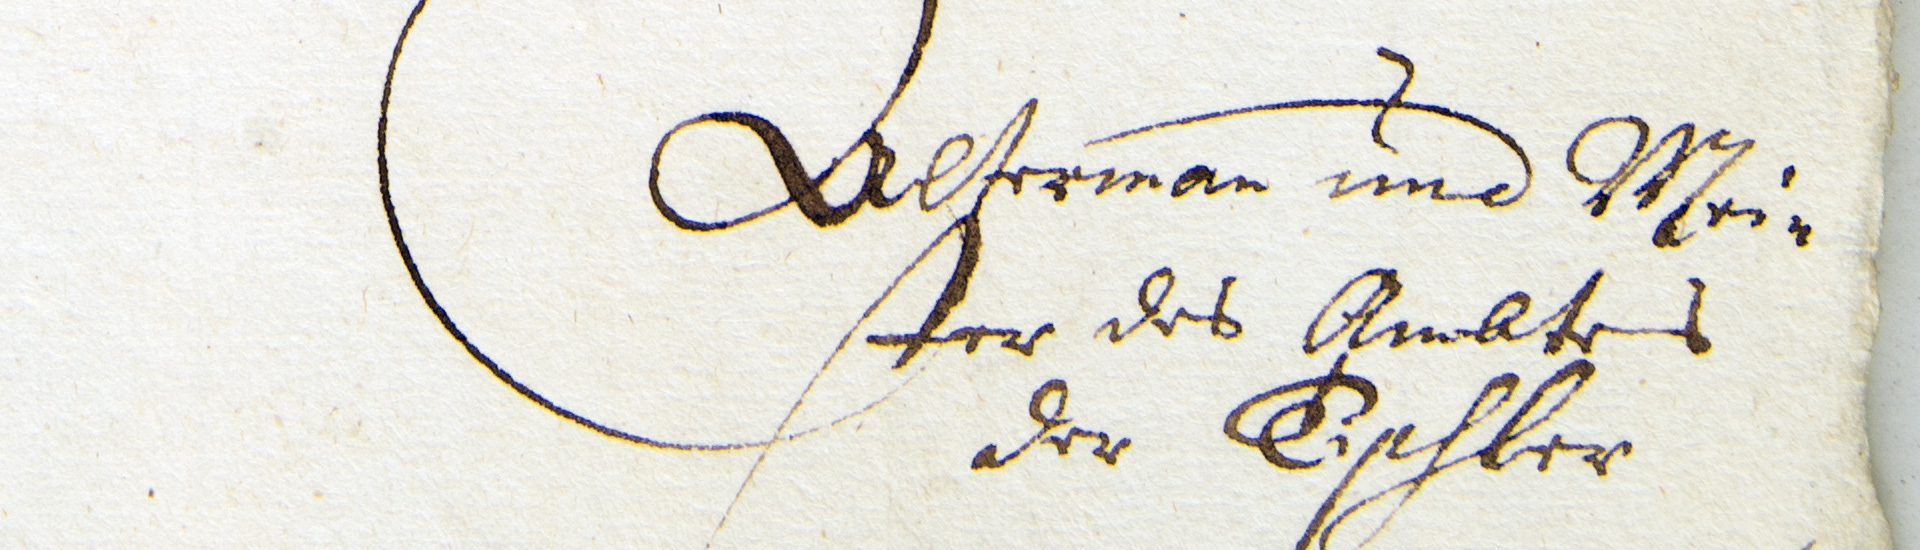 Alterman und Mei,
ster des Ambtes
der Tischler